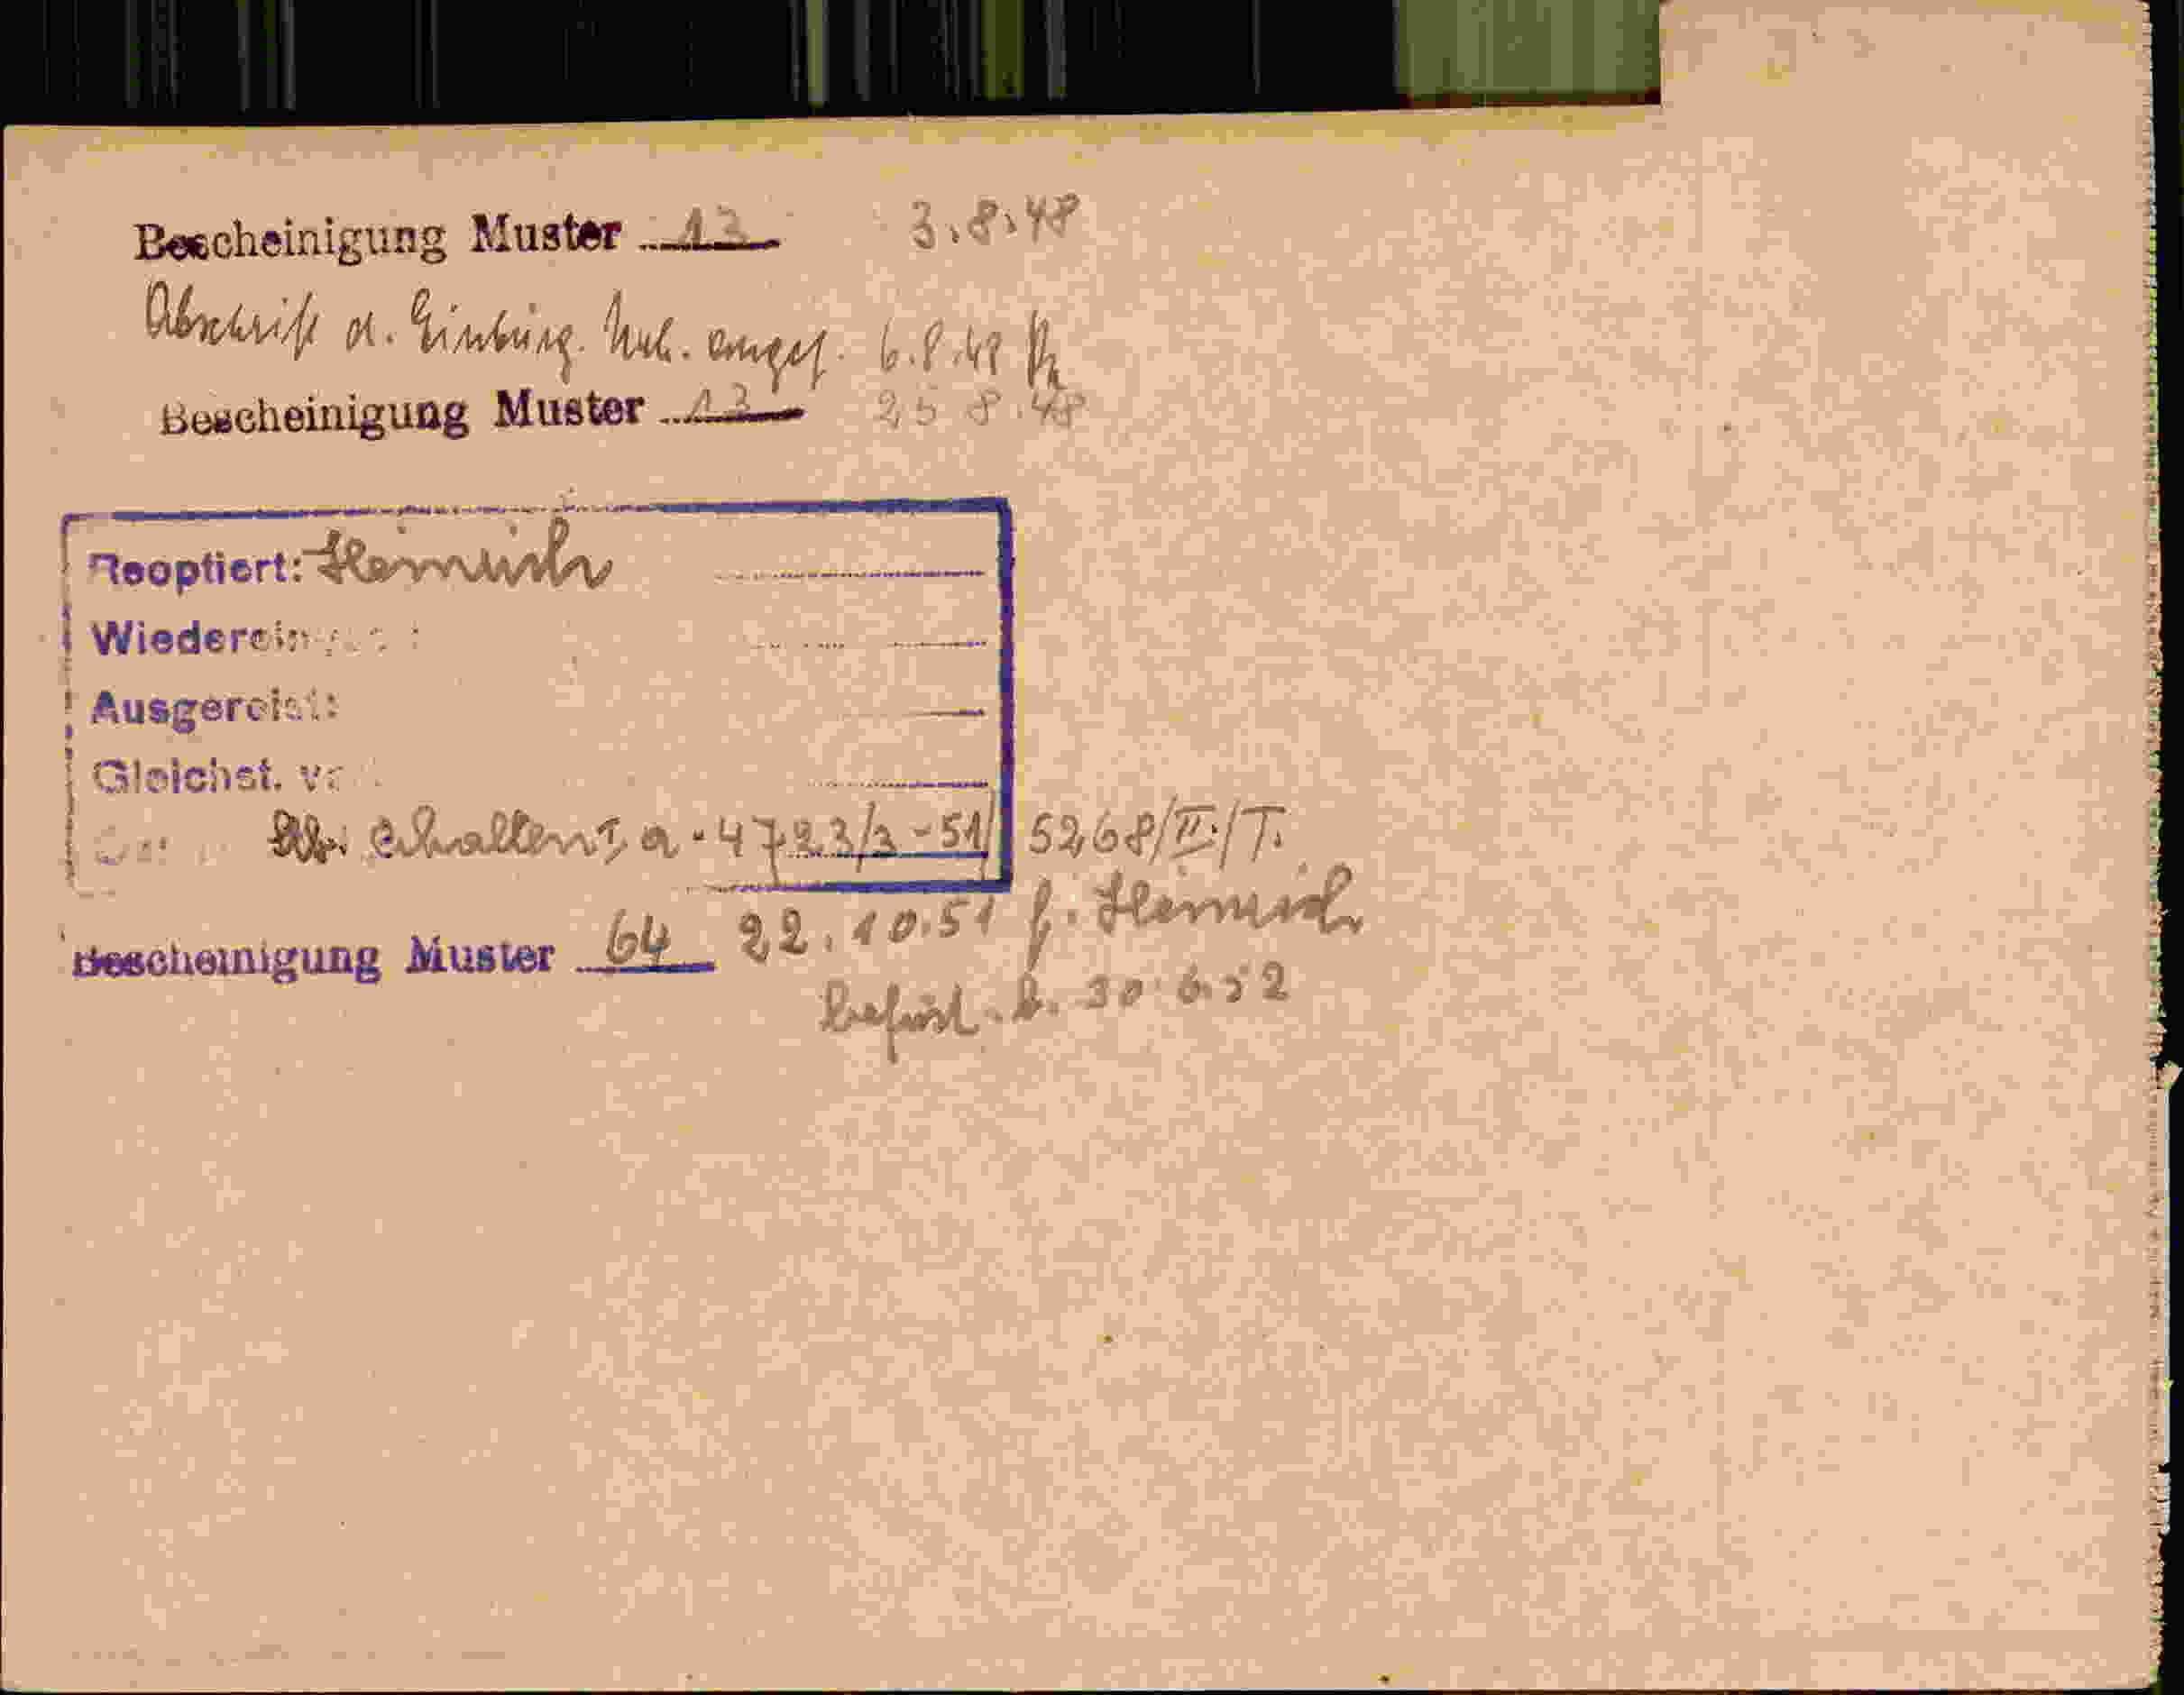 Bescheinigung Muster 13 3.8.48
Abschrift d. Einbürg. Urk. angef. 6.8.48
Bescheinigung Muster 13 25 8.48
Reoptiert: Heinrich
Ausgereist:
Gleichst.
erhalten I a - 4723/3 - 51/ 5268/II./T.
Bescheinigung Muster 64 22.10.51 f. Heinrich
befrist. b. 30.6.52